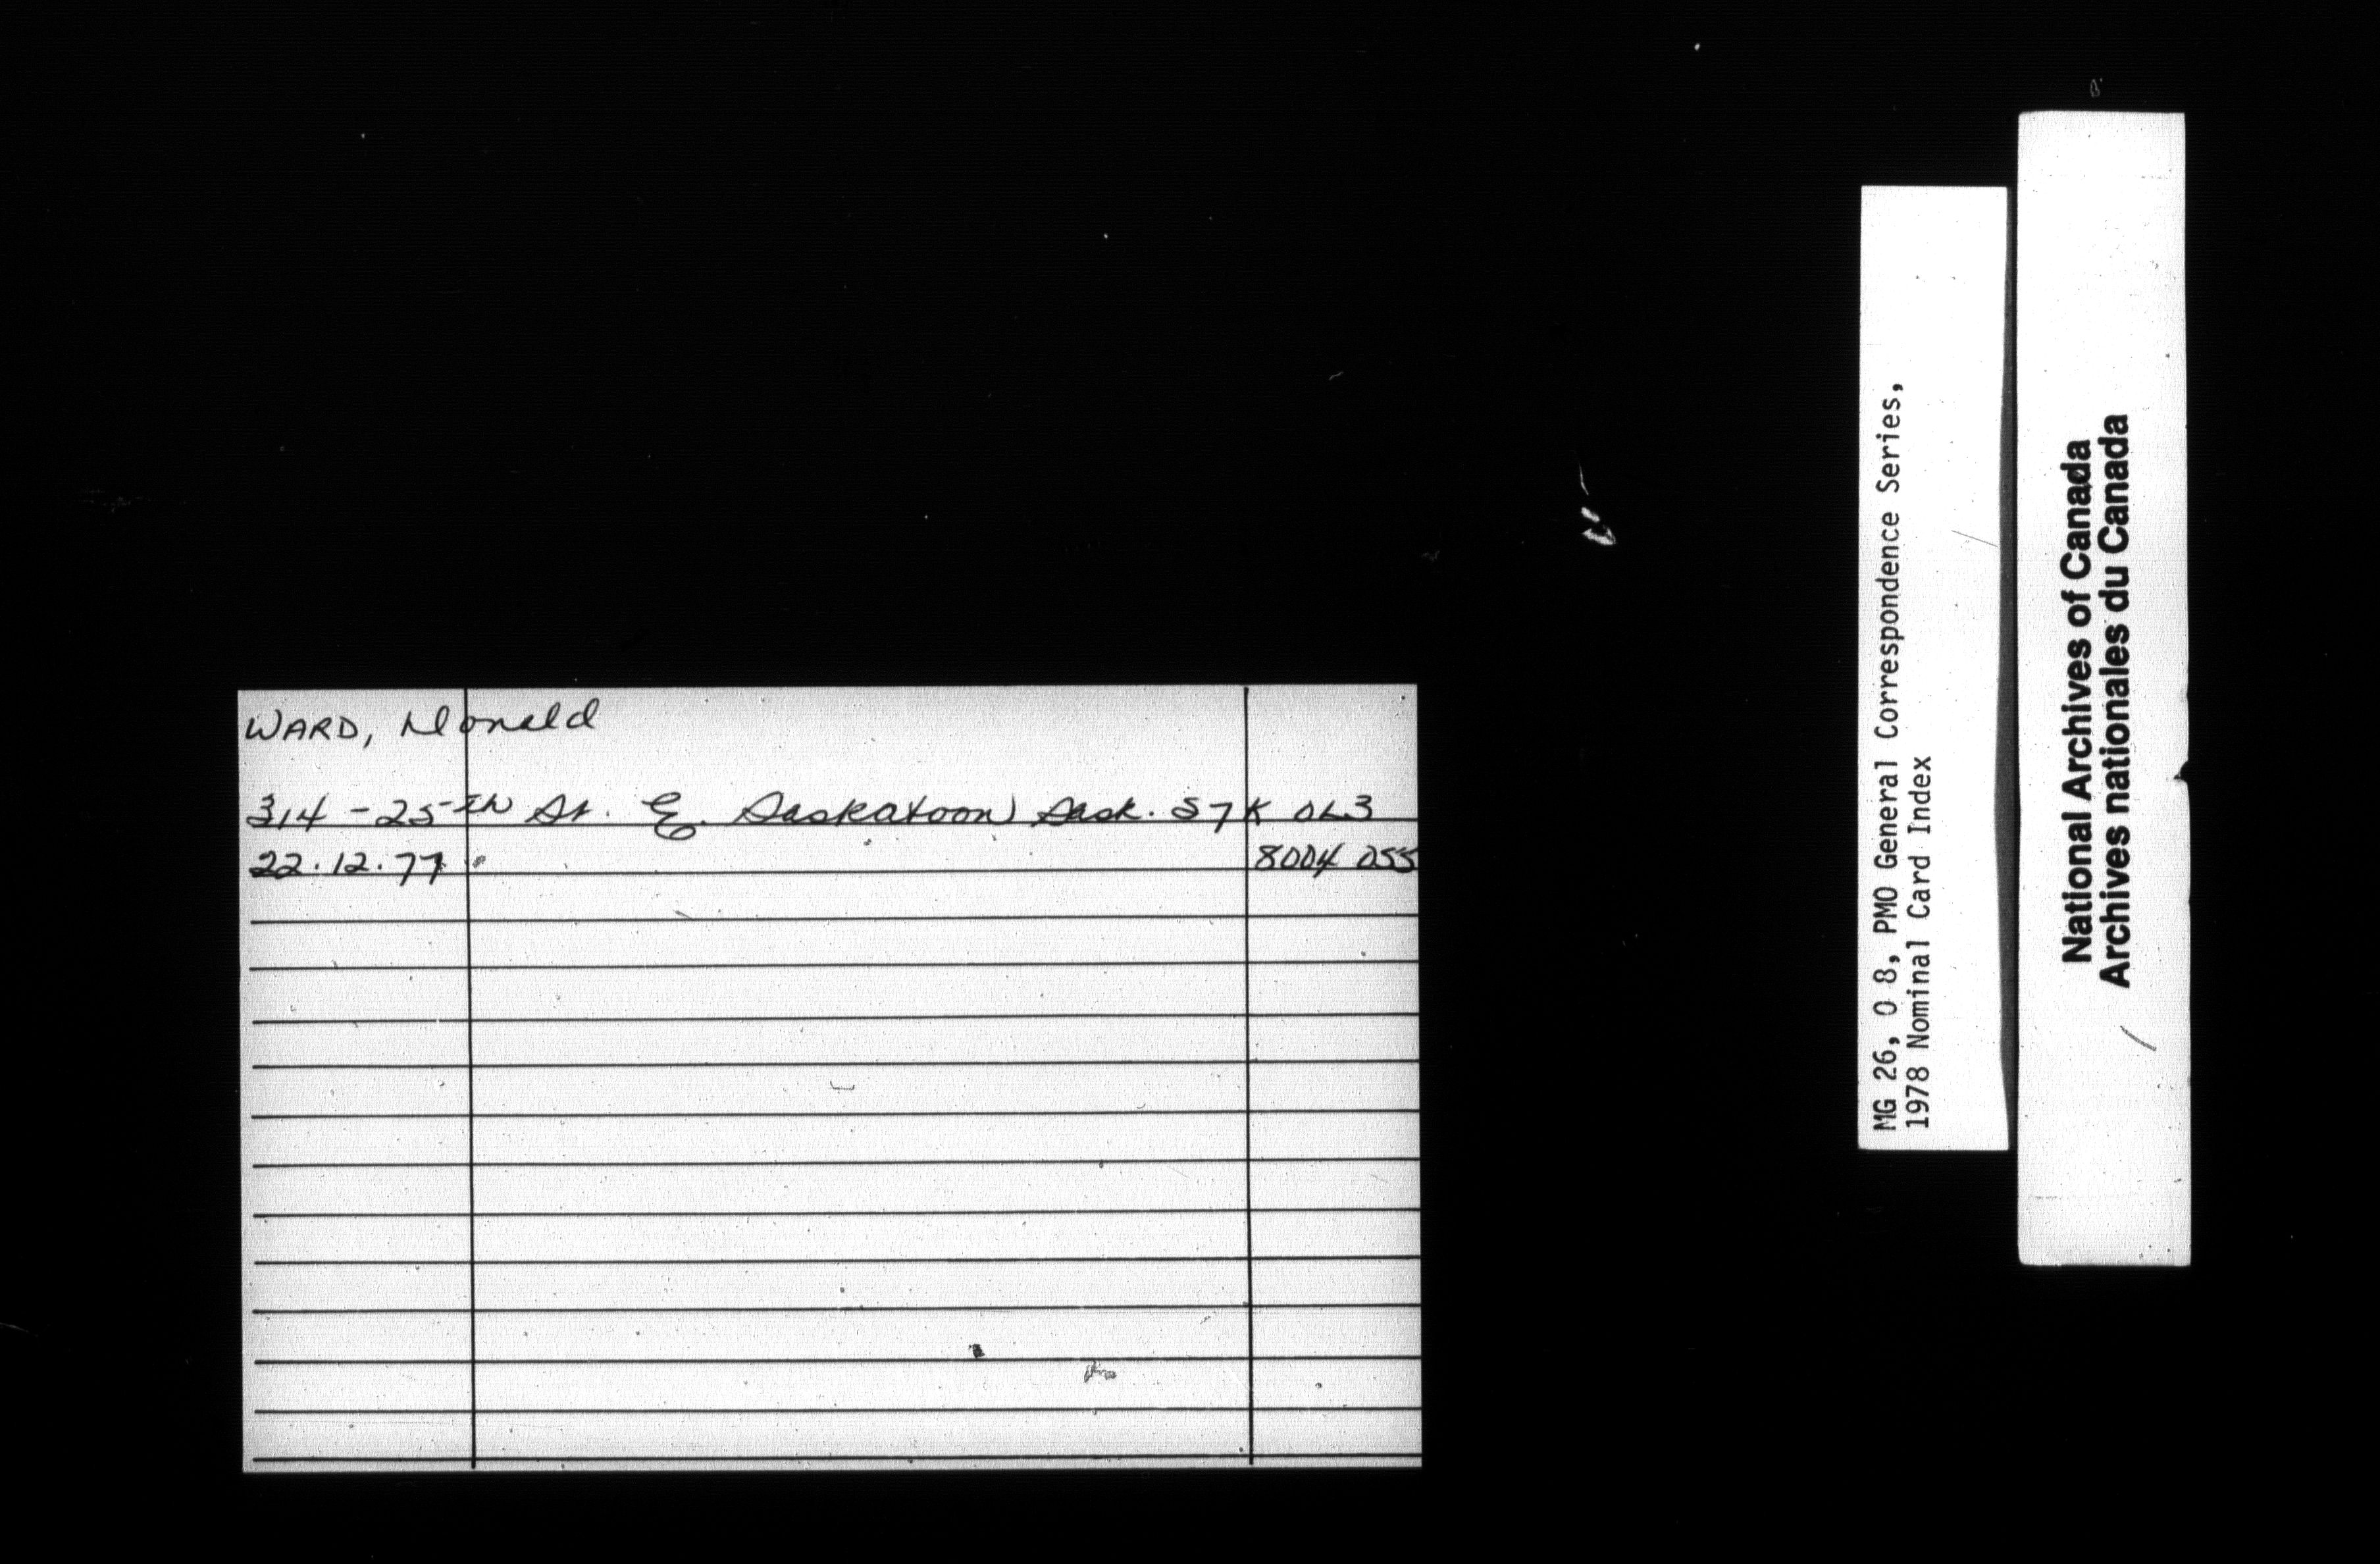 WARD, Donald
314 - 25th St. E. Saskatoon Sask. S7K 0L3
22.12.77 8004 055
MG 26, O 8, PMO General Correspondence Series,
1978 Nominal Card Index
National Archives of Canada
Archives nationales du Canada